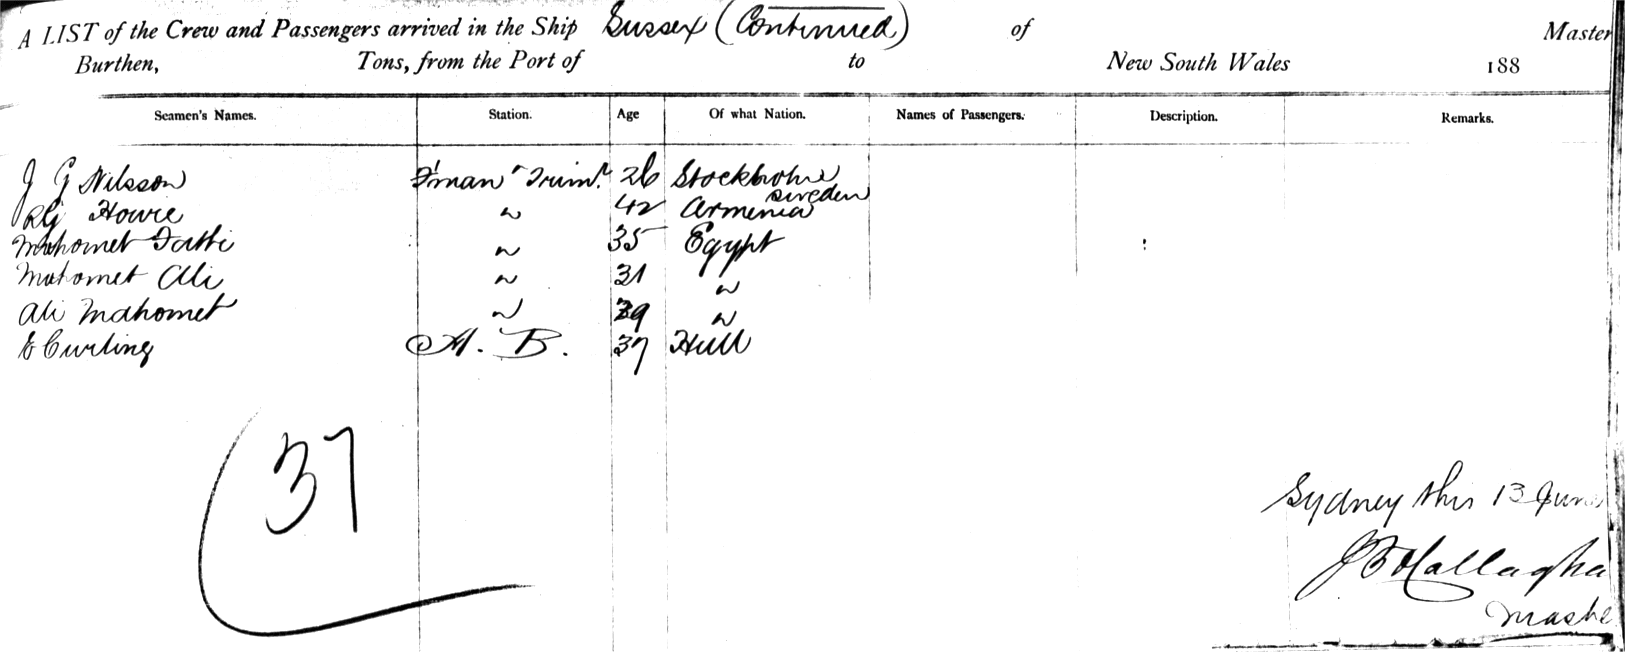 A LIST of the Crew and Passengers arrived in the Ship Sussex (Continued) of Master
Burthen, Tons, from the Port of to New South Wales 188
Seamen's Names. Station. Age Of what Nation. Names of Passengers. Description. Remarks.
J G Nilsson F'man & Trimr. 26 Stockholm
Sweden
RG Howie " 42 Armenia
Mahomet Fatti " 35 Egypt
Mahomet Ali " 31 "
Ali Mahomet " 39 "
E Curling A. B. 37 Hull
37
Sydney this 13 June
Master